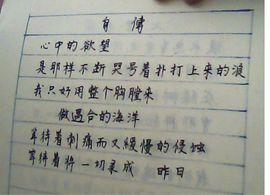 自传
心中的欲望
是那样不断哭号着扑打上来的浪
我只好用整个胸膛来
做遇合的海洋
等待着刺痛而又缓慢的侵蚀
等待着将一切变成 昨日